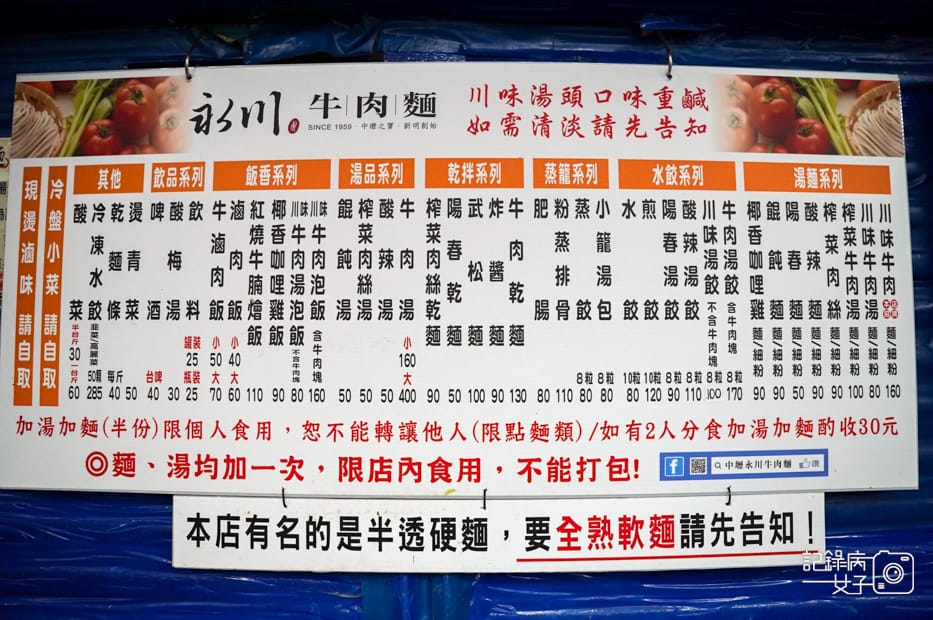 永川
牛肉麵
SINCE 1959 · 中壢之寶 · 新明創始
川味湯頭口味重鹹
如需清淡請先告知
湯麵系列
川味牛肉麵/細粉 160
川味牛肉湯麵/細粉 80
榨菜牛肉湯麵/細粉 100
榨菜肉絲麵/細粉 90
酸辣麵/細粉 90
陽春麵/細粉 50
餛飩麵/細粉 90
椰香咖哩雞麵/細粉 90
水餃系列
牛肉湯餃 含牛肉塊 8粒 170
川味湯餃 不含牛肉塊 8粒 100
酸辣湯餃 8粒
陽春湯餃 8粒
煎餃 10粒
水餃 10粒
蒸籠系列
小籠湯包 8粒 80
蒸餃 8粒 80
粉蒸排骨 110
肥腸 80
乾拌系列
牛肉乾麵 130
炸醬麵 90
武松麵 100
陽春乾麵 50
榨菜肉絲乾麵 90
湯品系列
牛肉湯 小 160 大 400
酸辣湯 50
榨菜肉絲湯 50
餛飩湯 50
飯香系列
川味牛肉泡飯 含牛肉塊 160
川味牛肉湯泡飯 不含牛肉塊 80
椰香咖哩雞飯 90
紅燒牛腩燴飯 110
滷肉飯 小 40 大 60
牛滷肉飯 小 50 大 70
飲品系列
飲料 罐裝 25 瓶裝 25
酸梅湯 30
啤酒 台啤 40
其他
燙青菜 50
乾麵條 每斤 40
冷凍水餃 韭菜/高麗菜 50顆 285
酸菜 半台斤 30 一台斤 60
冷盤小菜 請自取
現燙滷味 請自取
加湯加麵(半份)限個人食用，恕不能轉讓他人(限點麵類)/如有2人分食加湯加麵酌收30元
◎麵、湯均加一次，限店內食用，不能打包!
中壢永川牛肉麵 讚
本店有名的是半透硬麵，要全熟軟麵請先告知！
記錄病女子